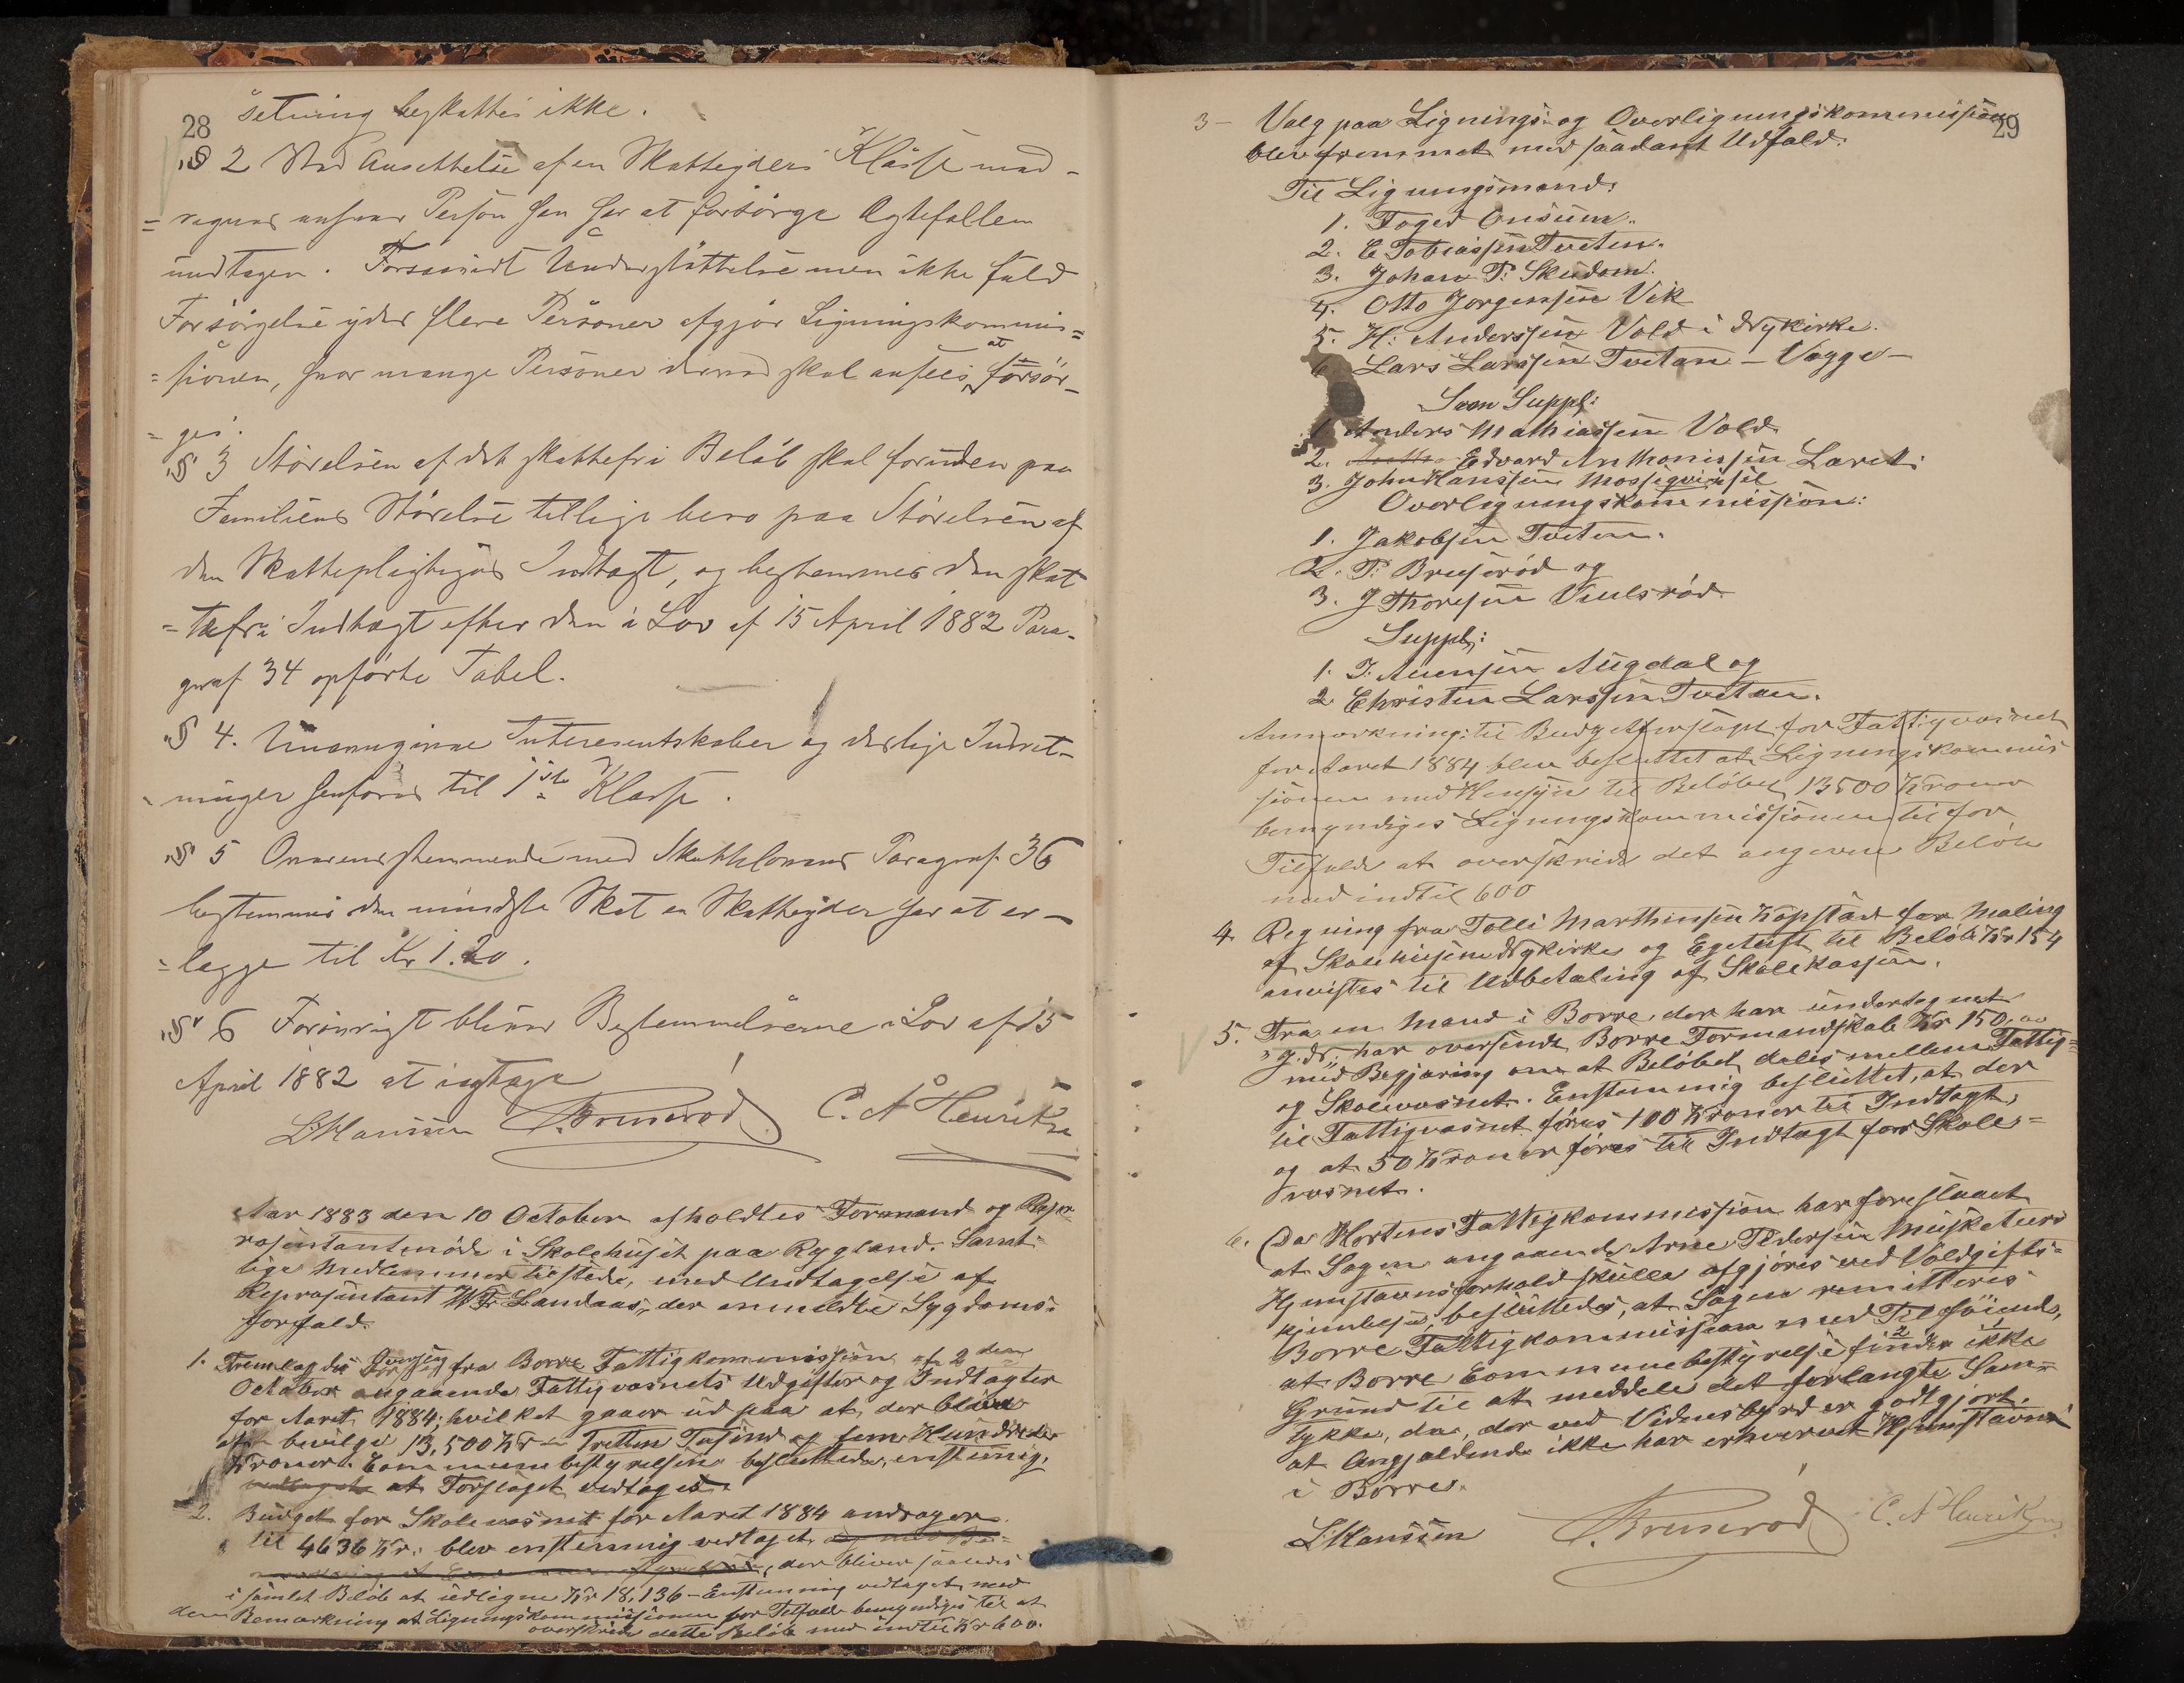 28
sætning beskattes ikke.
§ 2 Ved Ansettelse af en Skatteyders Klasse med-
= regnes enhver Person han har at forsörge Ægtefællen
undtagen. Forsaavidt Understöttelse men ikke fuld
Forsörgelse ydes flere Personer afgjör Ligningskommis=
= sionen, hvor mange Personer derved skal ansees at forsör-
= ges.
§ 3 Störelsen af det skattefri Belöb skal foruden paa
Familiens Störelse tillige bero paa Störelsen af
den Skattepligtiges Indtægt, og bestemmes den skat
= tefri Indtægt efter den i Lov af 15 April 1882 Para-
graf 34 opförte Tabel.
§ 4. Interesentskaber og deslige Indret-
- ninger henföres til 1ste Klasse.
§ 5 Overensstemmende med Skattelovens Paragraf 36
bestemmes den mindste Skat en Skatteyder har at er-
= lægge til Kr 1.20.
§ 6 Forövrigt bliver Bestemmelserne i Lov af 15
April 1882 at iagttage
L. Hanssen Bruserød C. A Henriksen
Aar 1883 den 10 October afholdtes Formand og Repræ
ræsentantmöde i Skolehuset paa Rygland. Samt-
lige Medlemmer tilstede, med Undtagelse af
Repræsentant Landaas, der anmeldte Sygdoms-
forfald.
1. Fremlagdes Overslag fra Borre Fattigkommission af 2den
October angaaende Fattigvæsnets Udgifter og Indtægter
for Aaret 1884; hvilket gaaer ud paa at der bliver
at bevilge 13,500 Kr - Tretten Tusind og fem Hundrede
Kroner. Communebestyrelsen besluttede, enstemig,
at Forslaget vedtages.
2. Budget for Skolevæsnet for Aaret 1884 andrager
til 4636 Kr. blev enstemmig vedtaget
, der bliver saaledes
i samlet Belöb at udligne Kr 18,136 - Enstemmig vedtaget med
den Bemærkning at Ligningskommissionen for Tilfælde bemyndiges til at
overskride dette Belöb med indtil Kr 600.
29
3 - Valg paa Lignings- og Overligningskommission
blev fremmet med saadant Udfald.
Til Ligningsmænd:
1. Foged Onsum.
2. E Tobiassen Tveten.
3. Johan P. Skudom.
4. Otto Jorgensen Vik
5. H. Anderssen Vold i Nykirke.
6 Lars Larssen Tveten - Vagge -
Som Suppl:
1 Anders Mathiassen Vold
2. Edvard Anthonissen
3. John Hanssen
Overligningskommission:
1. Jakobsen Tveten.
2. P. Bruseröd og
3. J Thoresen
Suppl:
1. Augdal og
2 Christen Larssen Tveten.
Anmærkning: til Budgetforslaget for Fattigvæsnet
for Aaret 1884 blev besluttet at Ligningskommis
sionen med Hensyn til Belöbet 13500 Kroner
bemyndiges Ligningskommissionen til for
Tilfælde at overskride det angivne Belöb
med indtil 600
4. Regning fra Tolli Marthinsen Kopstad for Maling
af Skolehusene Nykirke og til Belöb Kr 154
anvistes til Udbetaling af Skolekassen.
5. Fra en Mand i Borre, der har undertegnet
"J. D", har oversendt Borre Formandskab Kr 150,00
med Begjæring om at Belöbet deles mellem Fattig=
og Skolevæsnet. Enstemmig besluttet, at der
til Fattigvæsnet föres 100 Kroner til Indtægt,
og at 50 Kroner föres til Indtægt for Skole=
væsnet.
6. Da Hortens Fattigkommission har foreslaaet
at Sagen angaaende Arne Pedersen Musketeers
Hjemstavnsforhold skulle afgjöres ved Voldgifts-
kjendelse, besluttedes, at Sagen remitteres
Borre Fattigkommission med Tilföiende,
at Borre Communebestyrelse finder ikke
Grund til at meddele det forlangte Sam=
tykke, da, der ved Vidnesbyrd er godtgjort,
at Angjældende ikke har erhvervet Hjemstavn
i Borre.
L. Hanssen Bruserød C. A Henriksen